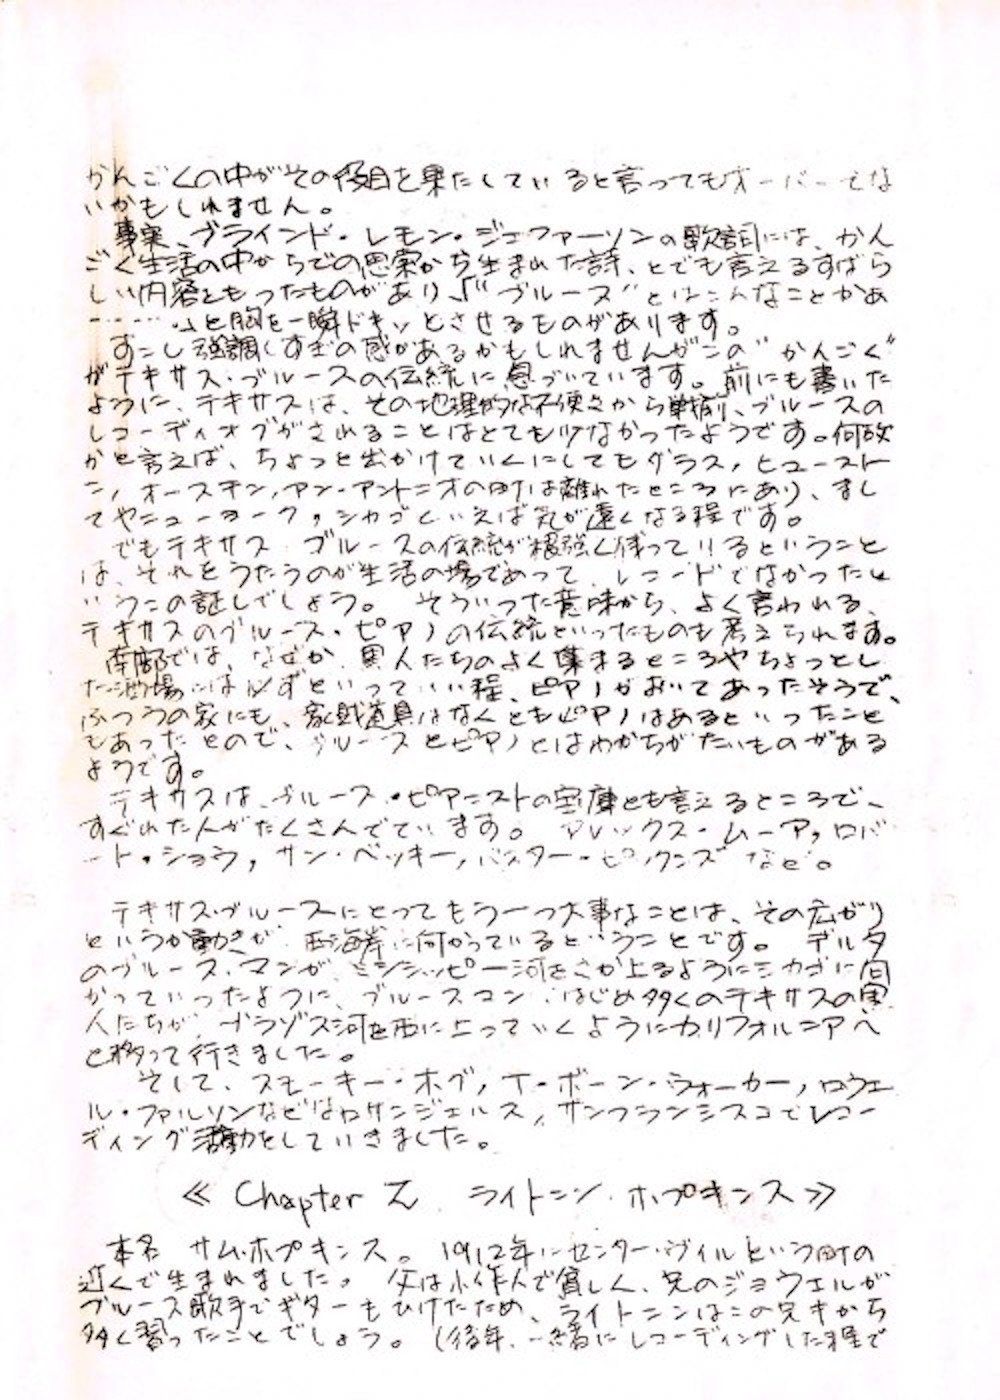 かんごくの中がその役目を果たしていると言ってもオーバーでな
いかもしれません。
事実、ブラインド・レモン・ジェファーソンの歌詞には、かん
ごく生活の中からでの思索から生まれた詩、とでも言えるすばら
しい内容をもったものがあり、「"ブルース"とはこんなことかあ
………」と胸を一瞬ドキッとさせるものがあります。
すこし強調しすぎの感があるかもしれませんがこの"かんごく"
がテキサス・ブルースの伝統に息づいています。前にも書いた
ように、テキサスは、その地理的な不便さから戦前、ブルースの
レコーディオブがされることはとても少なかったようです。何故
かと言えば、ちょっと出かけていくにしてもダラス, ヒュースト
ン, オースチン, アン・アントニオの町は離れたところにあり、まし
てやニューヨーク, シカゴといえば気が遠くなる程です。
でもテキサス・ブルースの伝統が根強く残っているということ
は、それをうたうのが生活の場であって、レコードでなかったと
いうこの証しでしょう。 そういった意味から、よく言われる、
テキサスのブルース・ピアノの伝統といったものも考えられます。
南部では、なぜか、黒人たちのよく集まるところやちょっとし
た酒場には必ずといっていい程、ピアノがおいてあったそうで、
ふつうの家にも、家財道具はなくともピアノはあるといったこと
もあったとので、ブルースとピアノとはわかちがたいものがある
ようです。
テキサスは、ブルース・ピアニストの宝庫とも言えるところで、
すぐれた人がたくさんでています。 アレックス・ムーア, ロバ
ート・ショウ, サン・ベッキー, バスター・ピックンズ など。
テキサス・ブルースにとってもう一つ大事なことは、その広がり
というか動きが、西海岸に何かっているということです。 デルタ
のブルース・マンが、ミシシッピー河をさか上るようにシカゴに向
かっていったように、ブルースマン、はじめ多くのテキサスの黒
人たちが、ブラゾス河を西に上っていくようにカリフォルニアへ
と移って行きました。
そして、スモーキー・ホグ, T-ボーン・ウォーカー, ロウェ
ル・ファルソンなどはロサンジェルス, サンフランシスコでレコー
ディング活動をしていきました。
≪ Chapter 2 ライトニン・ホプキンス ≫
本名 サム・ホプキンス。 1912年にセンター・ヴィルという町の
近くで生まれました。 父は小作人で貧しく、兄のジョウエルが
ブルース歌手でギターもひけたため、ライトニンはこの兄キから
多く習ったことでしょう。 (後年、一緒にレコーディングした程で